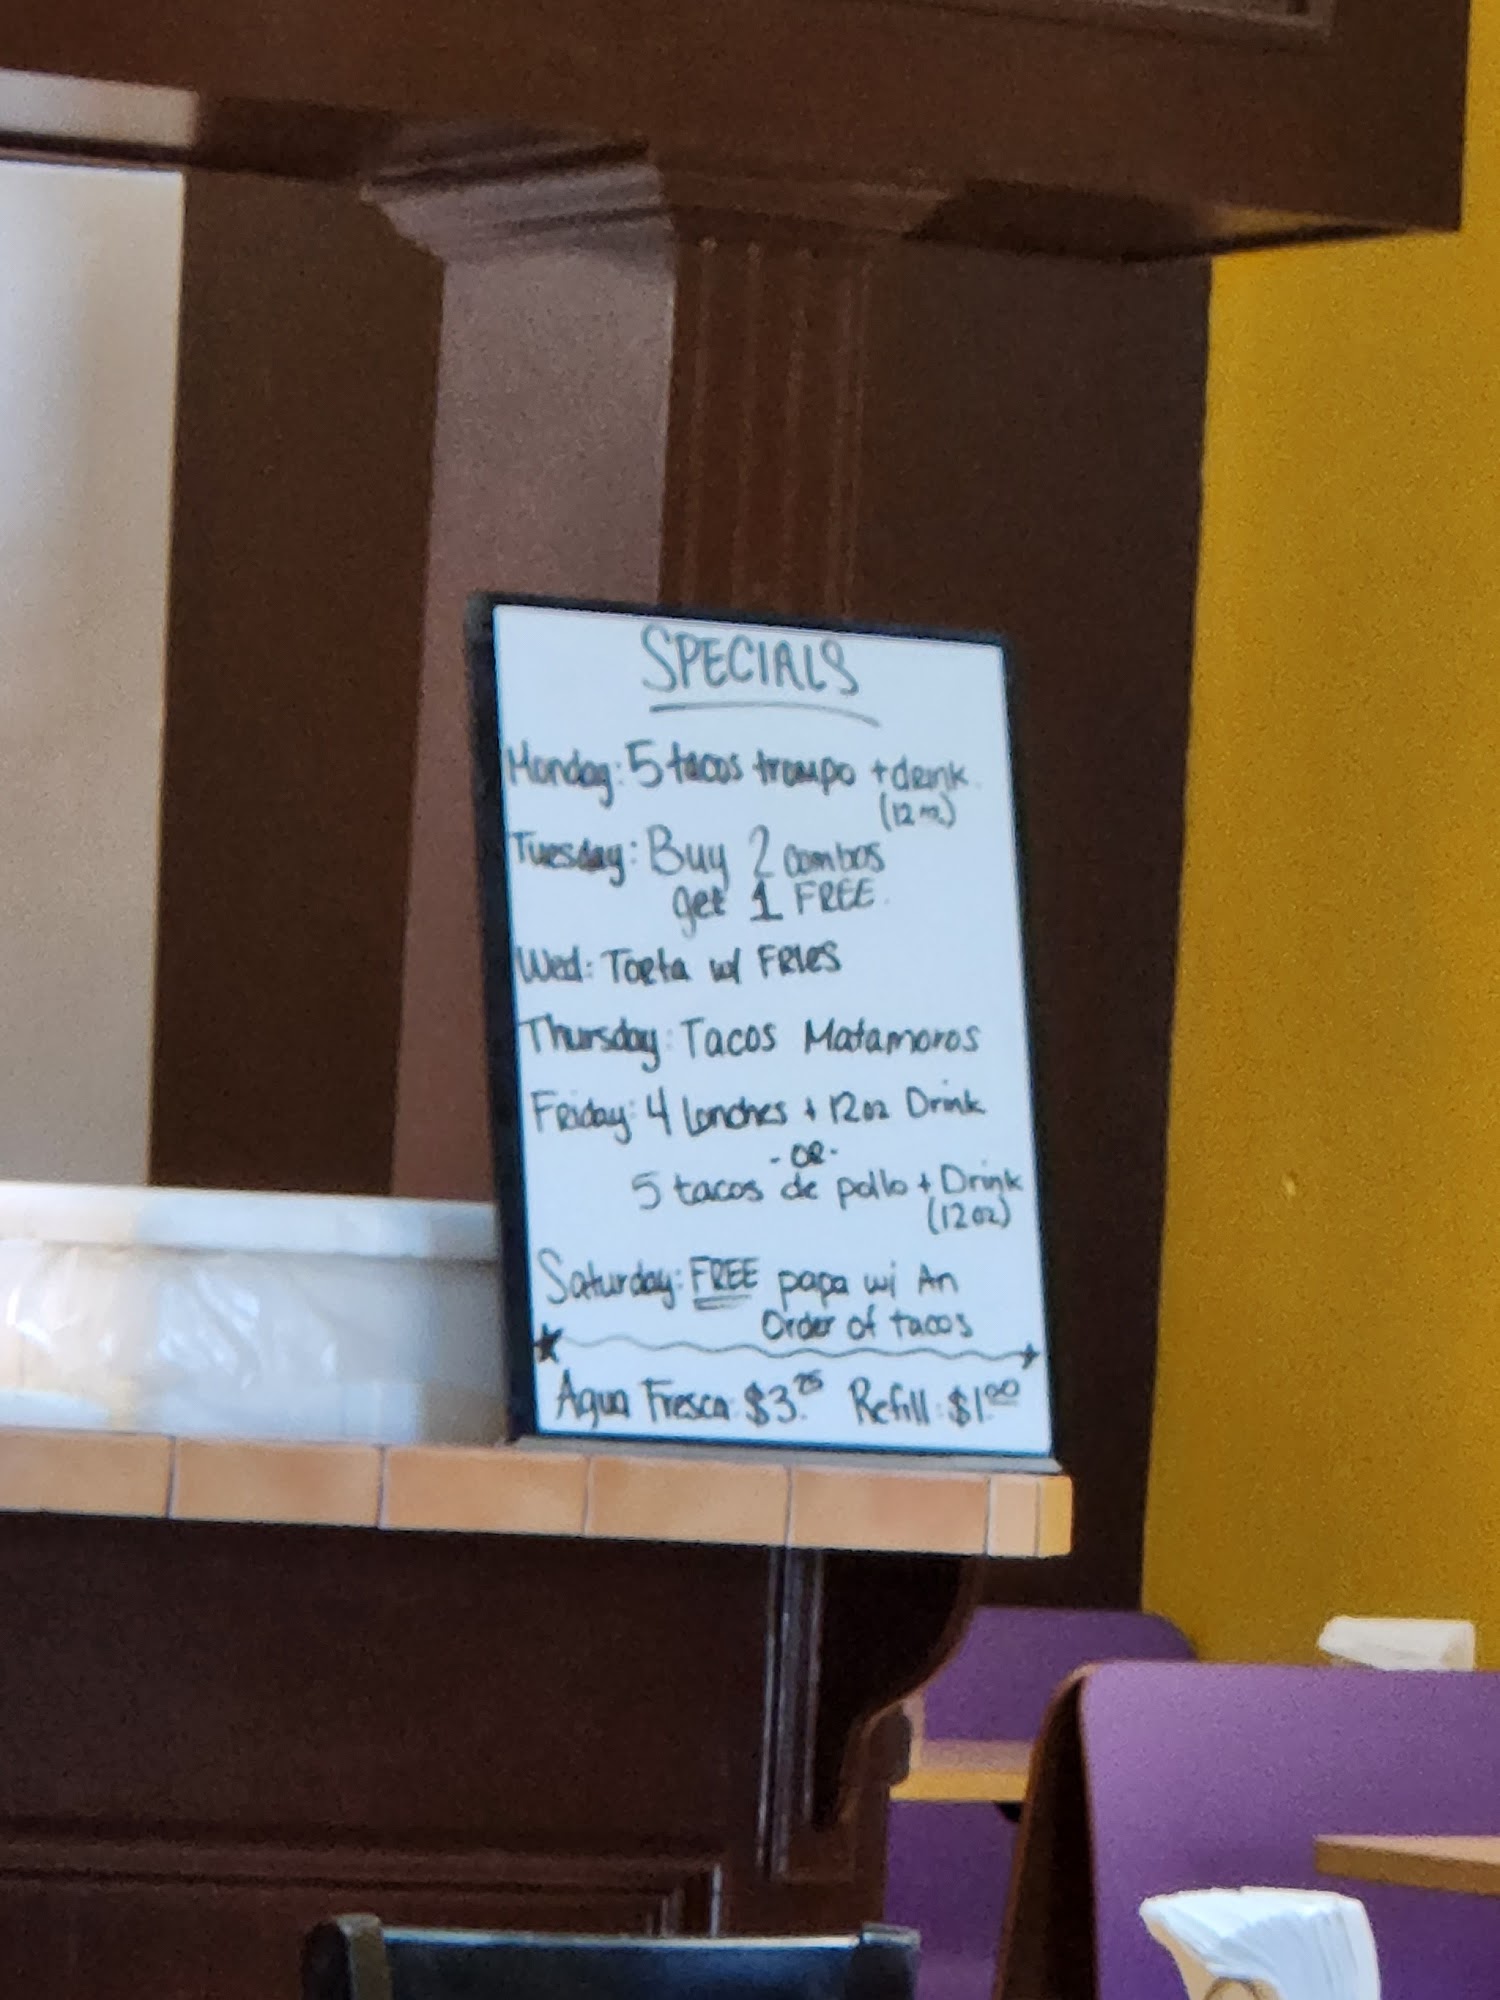 SPECIALS
Monday: 5 tacos trompo + drink.
(12 oz)
Tuesday: Buy 2 combos
get 1 FREE.
Wed: Torta w/ FRIES
Thursday: Tacos Matamoros
Friday: 4 Lonches + 12oz Drink
- OR -
5 tacos de pollo + Drink
(12oz)
Saturday: FREE papa w/ An
Order of tacos
Agua Fresca: $3.75 Refill: $1.00